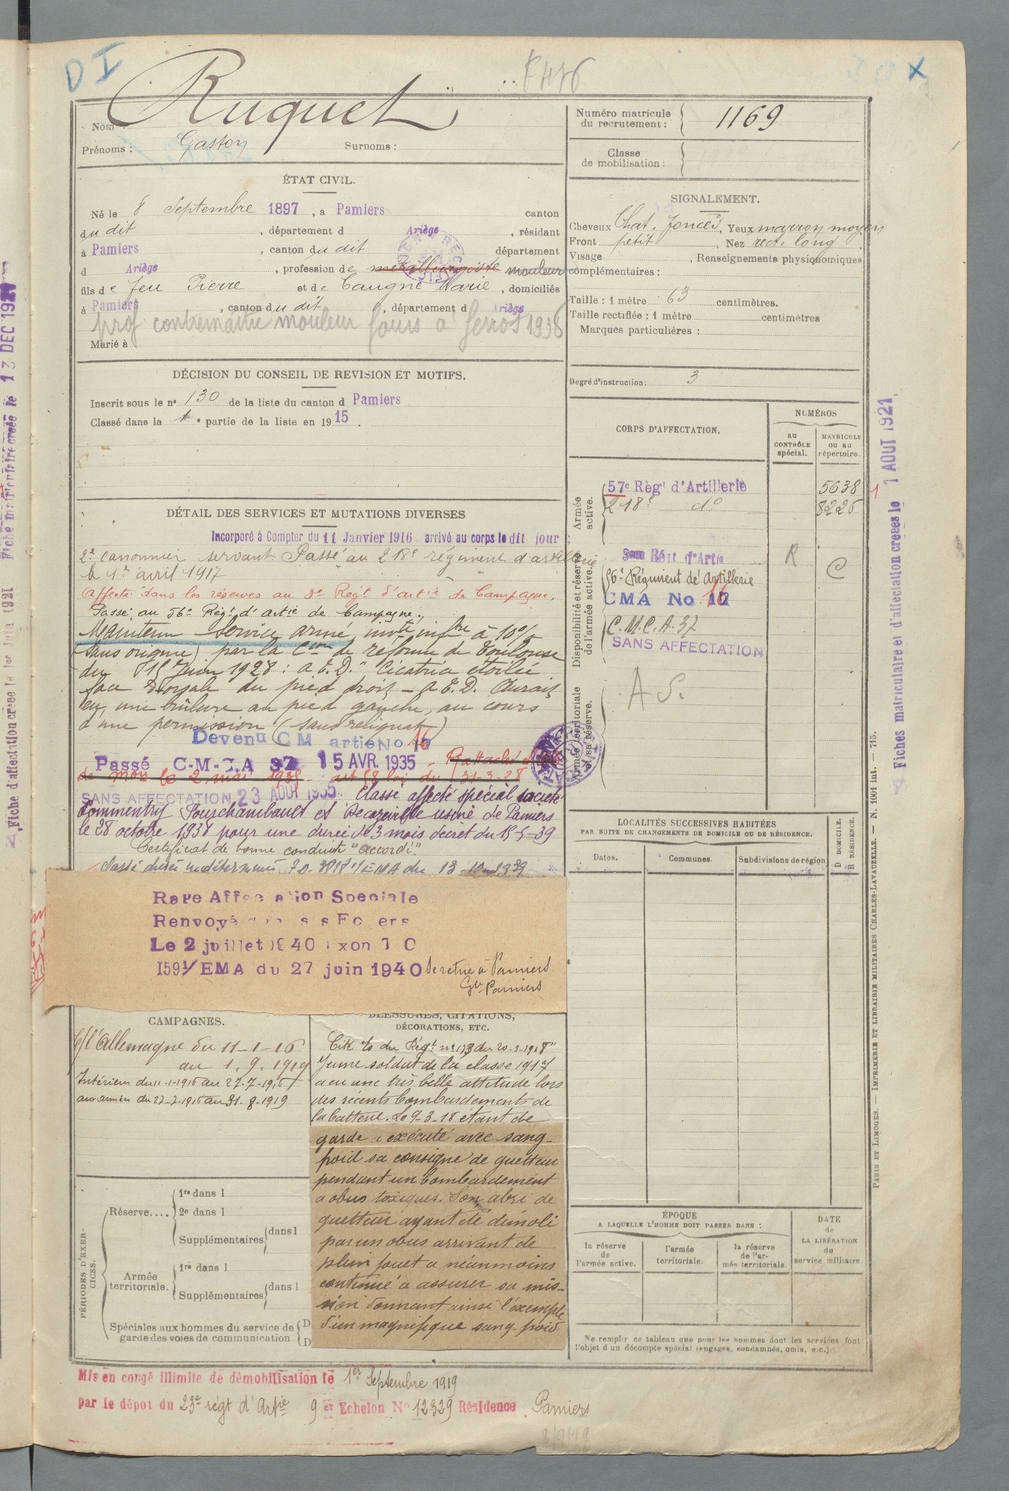 DI
Ruquet
Nom
Prénoms : Gaston Surnoms :
Numéro matricule du recrutement : 1169
Classe de mobilisation :
ÉTAT CIVIL.
Né le 8 Septembre 1897, à Pamiers canton
du dit, département d Ariège, résidant
à Pamiers, canton du dit département
d Ariège, profession de mouleur
fils de feu Pierre et de Marie, domiciliés
à Pamiers, canton du dit, département d Ariège
prof contremaître mouleur 1936
Marié à
SIGNALEMENT.
Cheveux Chat. foncés, Yeux marron moyen
Front petit, Nez rect. long
Visage , Renseignements physionomiques
complémentaires :
Taille : 1 mètre 63 centimètres.
Taille rectifiée : 1 mètre centimètres
Marques particulières :
Degré d'instruction : 3
DÉCISION DU CONSEIL DE REVISION ET MOTIFS.
Inscrit sous le n° 130 de la liste du canton d Pamiers
Classé dans la 1re partie de la liste en 1915.
CORPS D'AFFECTATION.
NUMÉROS
AU CONTRÔLE spécial.
MATRICULE OU AU répertoire.
Armée active.
57e Règt d'Artillerie 5638
218e do 8226
Disponibilité et réserve de l'armée active.
56e Régiment de Artillerie
R C
CMA No 17
C.M.C.A. 37
SANS AFFECTATION
Armée territoriale et sa réserve.
A S.
DÉTAIL DES SERVICES ET MUTATIONS DIVERSES
Incorporé à Compter du 11 Janvier 1916 arrivé au corps le dit jour
2e canonnier servant Passé au 218e régiment d'artillerie
le 1er avril 1917
Affecté dans les réserves au Régt d'artie de Campagne.
Passé au 56e Régt d'artie de Campagne.
Maintenu Service armé, invté infre à 10%
(sans origine) par la Con de réforme de Toulouse
du Juin 1928 : A.E.D. Cicatrice étoilée
face dorsale du pied droit - A.E.D. Aurait
eu une brûlure au pied gauche, au cours
d'une permission (sans reliquat)
Devenu CM artie No 17
Passé C-M-C-A 37 15 AVR. 1935
SANS AFFECTATION 23 AOUT 1935. Classé affecté spécial société
Commentry Fourchambault et Decazeville usine de Pamiers
le 28 octobre 1938 pour une durée de 3 mois décret du
Certificat de bonne conduite "accordé"
Passé durée indéterminée 1/EMA du 13-10-1939
Raye Affectation Speciale
Renvoyé dans ses Foyers
Le 2 juillet 1940
1591/EMA du 27 juin 1940 Se retire à Pamiers
Pamiers
LOCALITÉS SUCCESSIVES HABITÉES
PAR SUITE DE CHANGEMENTS DE DOMICILE OU DE RÉSIDENCE.
Dates. Communes. Subdivisions de région
D DOMICILE. R RÉSIDENCE.
CAMPAGNES.
C/ l'Allemagne du 11-1-16
au 1.9.1919
Intérieur du 11-1-1916 au 27-7-1916
aux armées du 27-7-1916 au 31-8-1919
BLESSURES, CITATIONS,
DÉCORATIONS, ETC.
Cité à l'O. du Régt n° 173 du 20-3-1918
"Jeune soldat de la classe 1917
a eu une très belle attitude lors
des récents bombardements de
la batterie. Le 9.3.18 étant de
garde a exécuté avec sang-
froid sa consigne de guetteur
pendant un bombardement
à obus toxiques. Son abri de
guetteur ayant été démoli
par un obus arrivant de
plein fouet a néanmoins
continué à assurer sa mis-
sion donnant ainsi l'exemple
d'un magnifique sang-froid
PÉRIODES D'EXERCICES.
Réserve....
1re dans l
2e dans l
Supplémentaires dans l
Armée territoriale.
1re dans l
Supplémentaires dans l
Spéciales aux hommes du service de garde des voies de communication D D
ÉPOQUE
A LAQUELLE L'HOMME DOIT PASSER DANS :
la réserve de l'armée active.
l'armée territoriale.
la réserve de l'armée territoriale.
DATE de LA LIBÉRATION du service militaire.
Ne remplir ce tableau que pour les hommes dont les services font
l'objet d'un décompte spécial (engagés, condamnés, omis, etc.)
Mis en congé illimité de démobilisation le 1er Septembre 1919
par le dépot du 23e régt d'Artie 9er Echelon No 12329 Résidence Pamiers
Fiches matriculaire et d'affectation créées le 1 AOUT 1921
PARIS ET LIMOGES. — IMPRIMERIE ET LIBRAIRIE MILITAIRES CHARLES-LAVAUZELLE. — N. 1001 int. — 715.